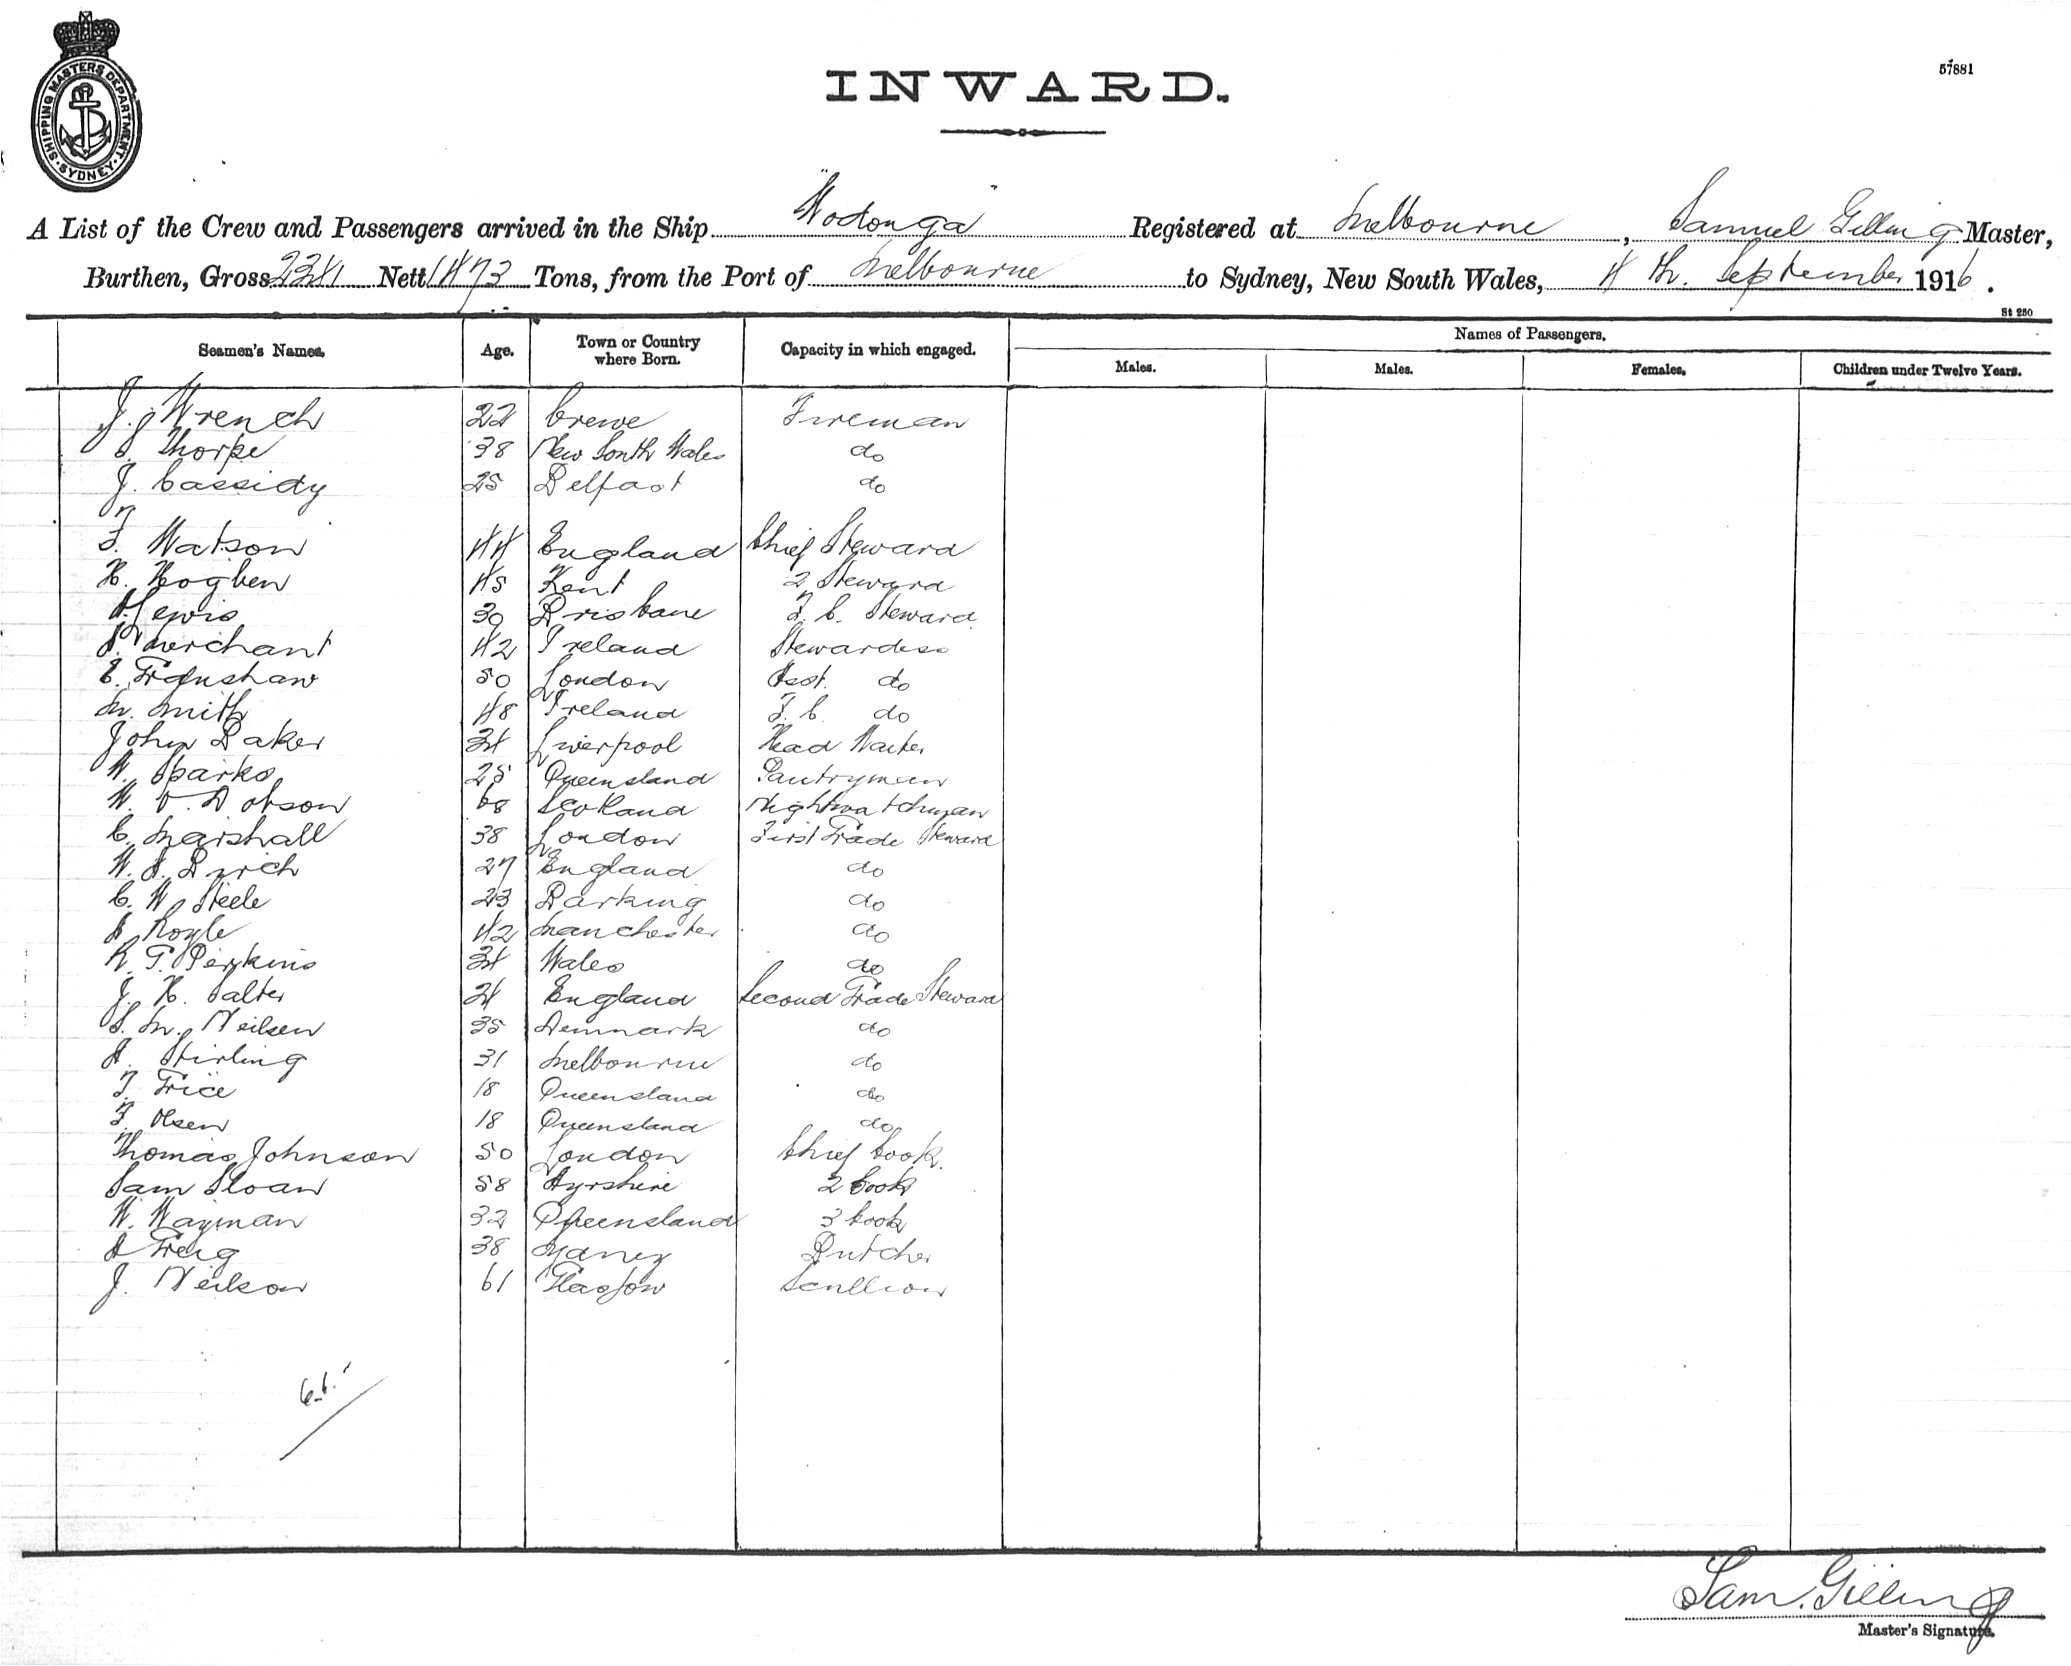 SHIPPING MASTERS DEPARTMENT SYDNEY
INWARD.
57881
A List of the Crew and Passengers arrived in the Ship "Wodonga" Registered at Melbourne, Samuel Gilling Master,
Burthen, Gross 2341 Nett 1473 Tons, from the Port of Melbourne to Sydney, New South Wales, 4th. September 1916.
St 250
Seamen's Names. Age. Town or Country where Born. Capacity in which engaged. Names of Passengers.
Males. Males. Females. Children under Twelve Years.
J. Wrench 22 Crewe Fireman
J. Thorpe 38 New South Wales do
J. Cassidy 25 Belfast do
F. Watson 44 England Chief Steward
H. Hogben 45 Kent 2 Steward
A. Lewis 30 Brisbane F. C. Steward
A. Merchant 42 Ireland Stewardess
E. Franshaw 50 London Asst. do
M. Smith 48 Ireland F. C. do
John Baker 34 Liverpool Head Waiter
W. Sparks 25 Queensland Pantryman
W. V. Dobson 68 Scotland Nightwatchman
C. Marshall 38 London First Grade Steward
W. A. Burch 27 England do
C. W. Steele 23 Barking do
A. Royle 42 Manchester do
R. G. Perkins 34 Wales do
J. H. Salter 21 England Second Grade Steward
S. M. Neilsen 35 Denmark do
A. Stirling 31 Melbourne do
F. Price 18 Queensland do
F. Olsen 18 Queensland do
Thomas Johnson 50 London Chief Cook.
Sam Sloan 58 Ayrshire 2 Cook
W. Wayman 32 Queensland 3 Cook
A Greig 38 Butcher
J. Neilson 61 Glasgow Scullion
Sam. Gilling
Master's Signature.